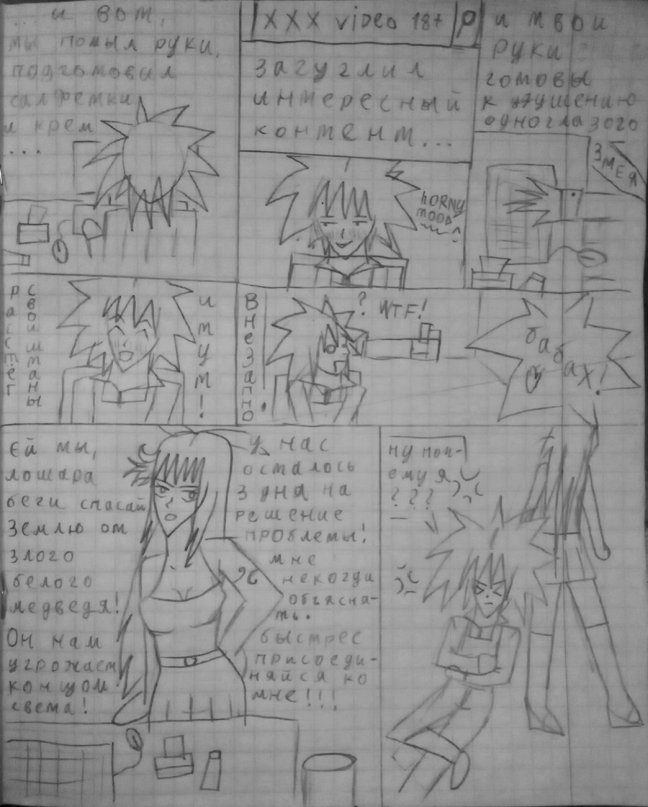 ... и вот,
ты помыл руки,
подготовил
салфетки
и крем
...
XXX video 18+
загуглил
интересный
контент...
и твои
руки
готовы
к удушению
одноглазого
змея
HORNY
MOOD
расстег
свои штаны
и тут!
Внезапно
?
WTF!
бабах!
Ей ты,
лошара
беги спасай
Землю от
злого
белого
медведя!
Он нам
угрожает
концом
света!
у нас
осталось
3 дня на
решение
проблемы!
мне
некогда
объясня-
ть.
быстрее
присоеди-
няйся ко
мне!!!
ну поч-
ему я
???